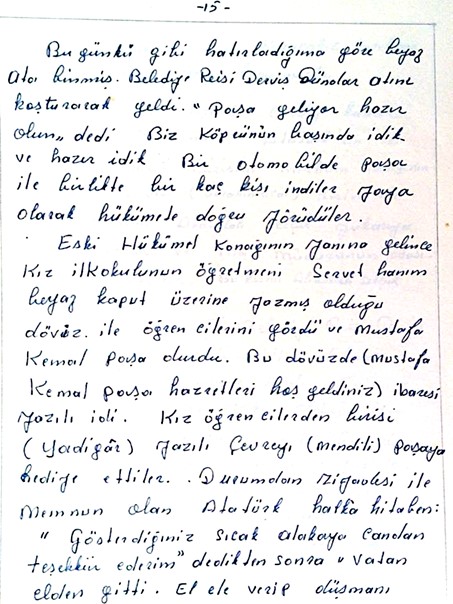 -15-
Bu günkü gibi hatırladığıma göre beyaz
Ata binmiş. Belediye Reisi Derviş Dündar atını
koşturarak geldi. " Paşa geliyor hazır
olun„ dedi Biz Köprünün başında idik
ve hazır idik Bir otomobilde paşa
ile birlikte bir kaç kişi indiler Yaya
olarak hükümete doğru yürüdüler.
Eski Hükümet Konağının Yanına gelince
Kız ilkokulunun öğretmeni Servet hanım
beyaz kaput üzerine yazmış olduğu
dövüz. ile öğrencilerini gördü ve Mustafa
Kemal paşa durdu. Bu dövüzde (Mustafa
Kemal paşa hazretleri hoş geldiniz) ibaresi
yazılı idi. Kız öğrencilerden birisi
(Yadigâr) yazılı Çevreyi (mendili) paşaya
hediye ettiler. . Durumdan ziyadesi ile
Memnun olan Atatürk halka hitaben:
" Gösterdiğiniz sıcak alakaya candan
teşekkür ederim" dedikten sonra " Vatan
elden gitti. El ele verip düşmanı